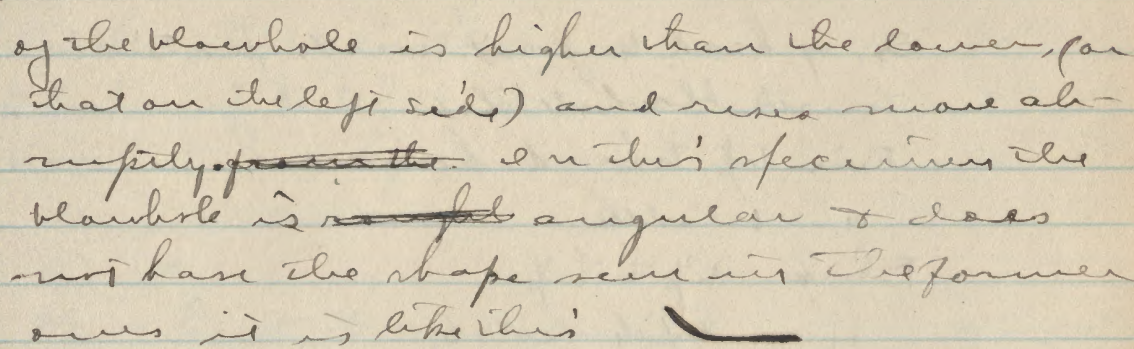 of the blowhole is higher than the lower, (or
that on the left side) and rises more ab-
ruptly. from the In this specimen the
blowhole is angular & does
not have the shape seen in the former
ones it is like this